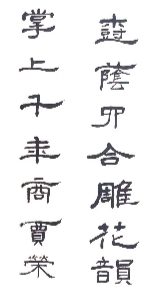 樹蔭四合雕花韻
掌上千年商賈榮